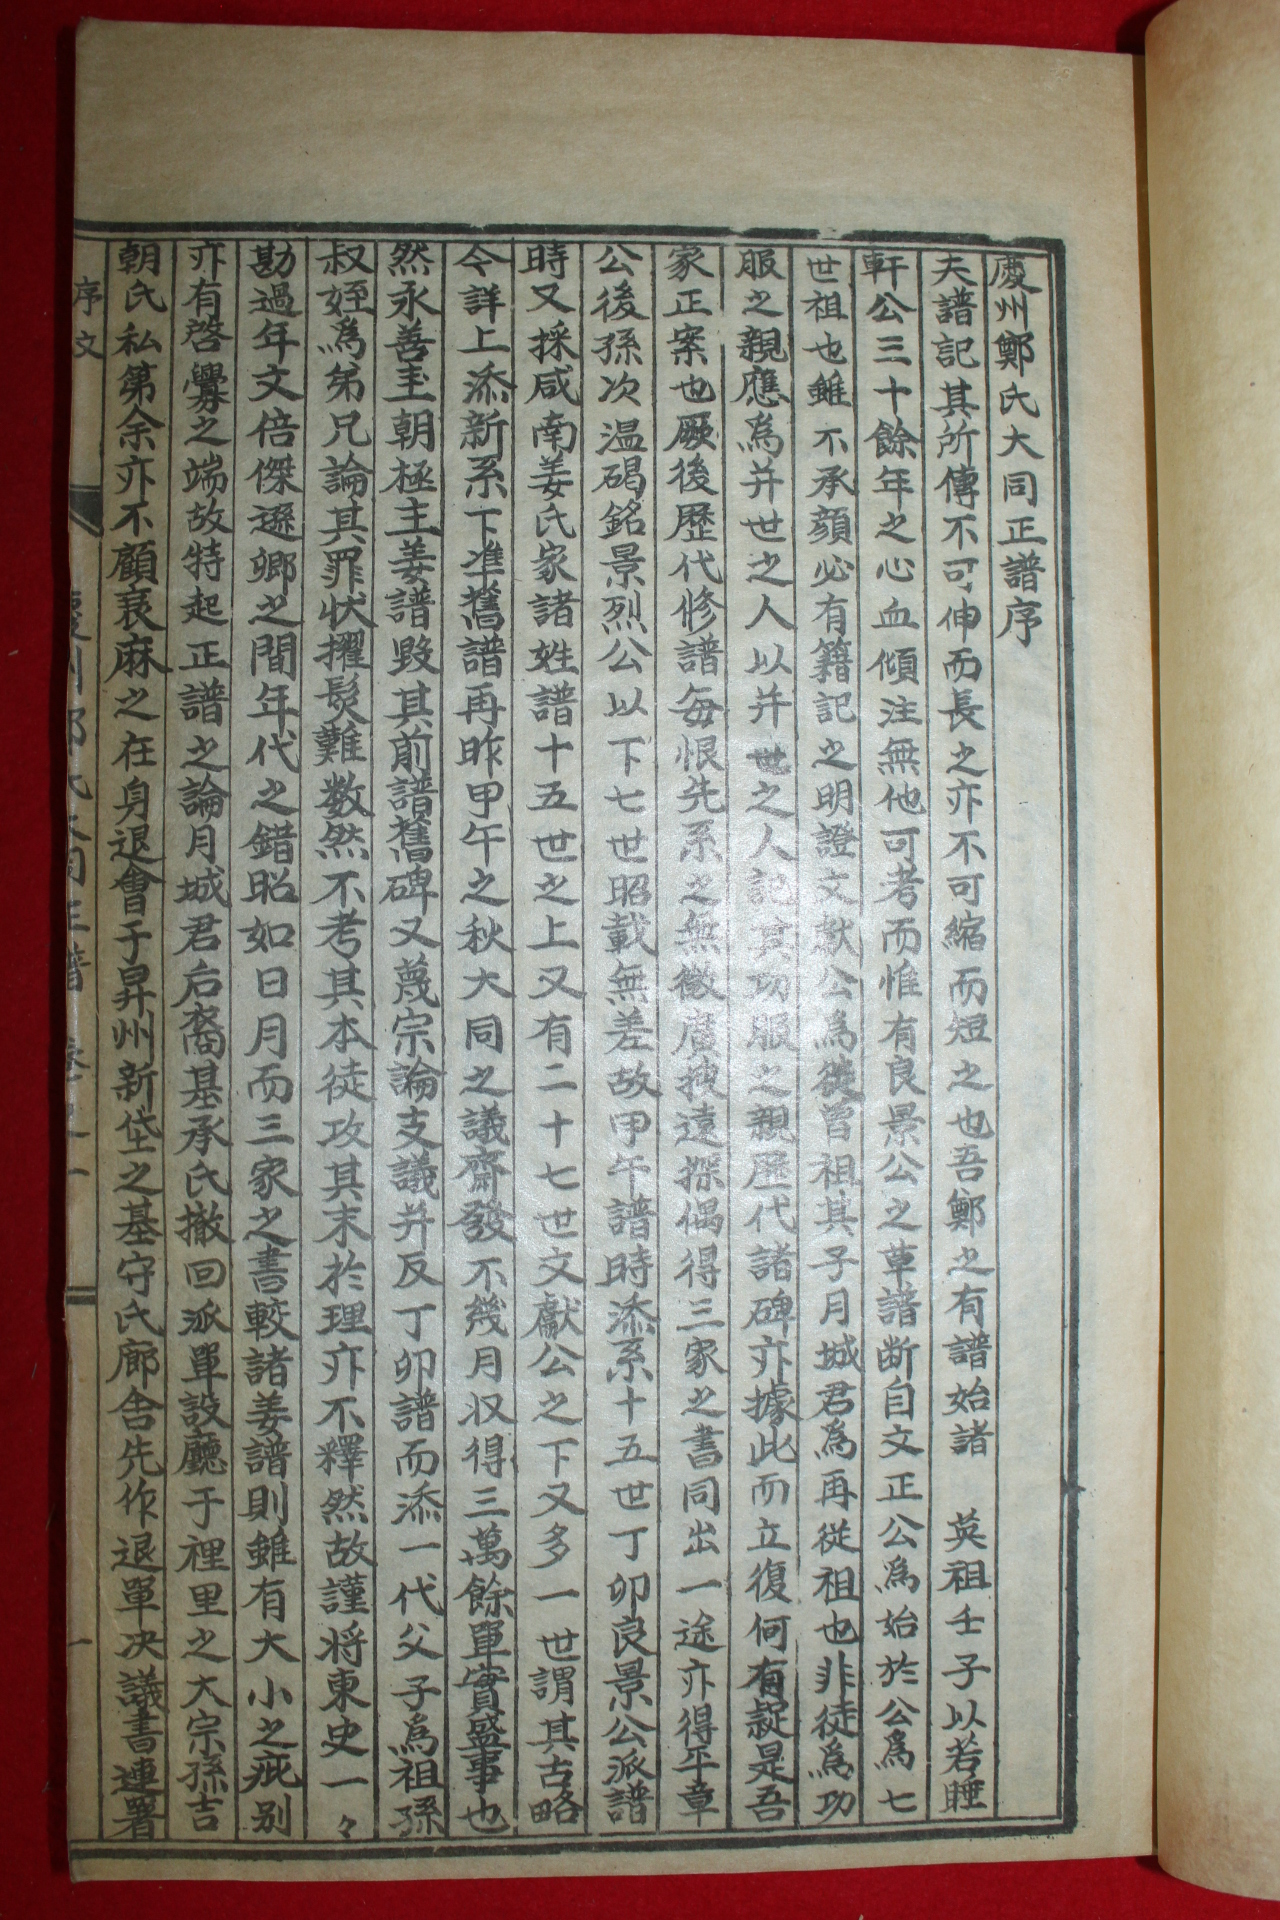 慶州鄭氏大同正譜序
夫譜記其所傳不可伸而長之亦不可縮而短之也吾鄭之有譜始諸 英祖壬子以若睡
軒公三十餘年之心血傾注無他可考而惟有良景公之草譜断自文正公爲始於公爲七
世祖也雖不承顔必有籍記之明證文献公爲從曾祖其子月城君爲再從祖也非徒爲功
服之親應爲并世之人以并世之人記其功服之親歷代諸碑亦據此而立復何有疑是吾
家正案也厥後歷代修譜每恨先系之無徵廣搜遠探偶得三家之書同出一途亦得平章
公後孫次温碣銘景烈公以下七世昭載無差故甲午譜時添系十五世丁卯良景公派譜
時又採咸南姜氏家諸姓譜十五世之上又有二十七世文獻公之下又多一世謂其古略
今詳上添新系下準舊譜再昨甲午之秋大同之議齋發不幾月収得三萬餘單實盛事也
然永善圭朝極主姜譜毁其前譜舊碑又蔑宗論支議并反丁卯譜而添一代父子爲祖孫
叔姪爲弟兄論其罪状擢髮難数然不考其本徒攻其末於理亦不釋然故謹将東史一々
勘過年文倍傑遜卿之間年代之錯昭如日月而三家之書較諸姜譜則雖有大小之疵别
亦有啓釁之端故特起正譜之論月城君后裔基承氏撤回派單設廳于裡里之大宗孫吉
朝氏私第余亦不顧衰麻之在身退會于昇州新垈之基守氏廊舎先作退單决議書連署
序文
慶州鄭氏大同正譜 卷之一 一